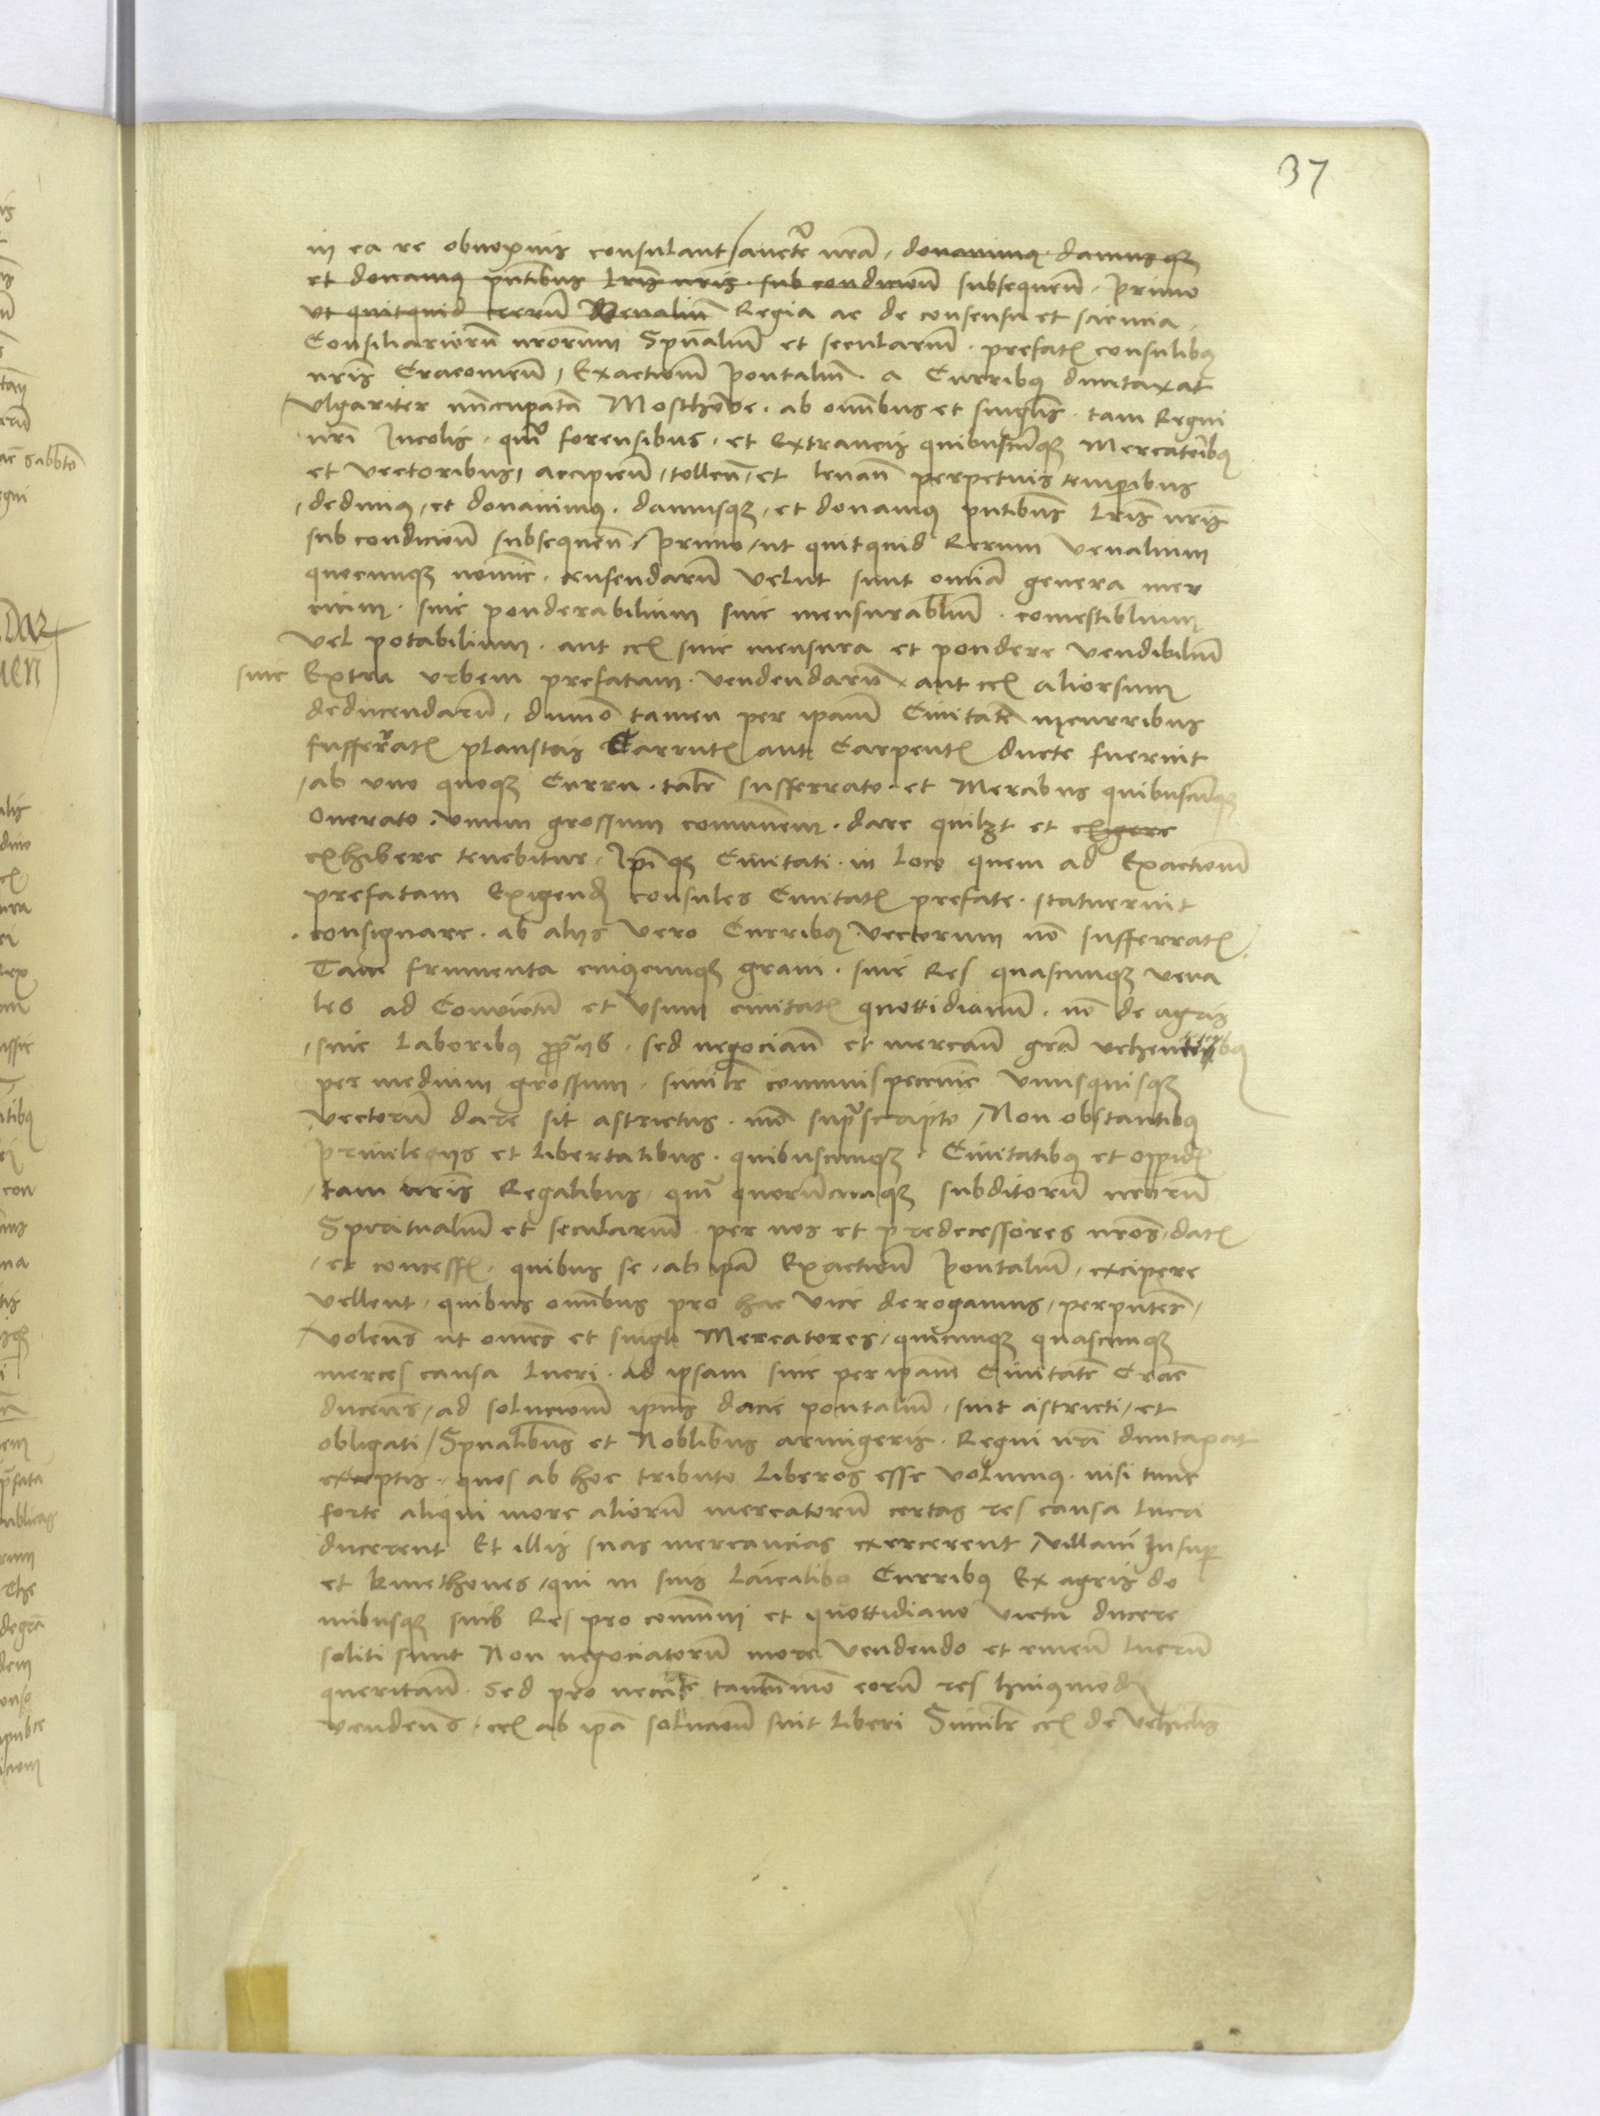 37
in ea re obnoxius consulant / aucte nrã . donavimus . damusq
et donamus pntibus lris nris . sub condicion subsequen . Primo
ut quitquid rerum Venalium Regia ac de consensu et sciencia .
Consiliariorum nrorum Spualium et secularium . prefatis consulibus
nris Cracovien , Exactionem pontalium . a Curribus duntaxat
vulgariter nuncupatam Mosthowe . ab omnibus et singlis . tam Regni
nri Incolis . qm forensibus . et Extraneis quibuscunq Mercatoribus
et vectoribus , accipien , tollen , et levan perpetuis temporibus
, dedimus , et donavimus . damusq , et donamus pntibus lris nris
sub condicion subsequen , Primo , ut quitquid Rerum venalium
quocunq nomine . censendarum velut sunt omnia genera mer
cium . sive ponderabilium sive mensurablium . comestiblium
vel potabilium . aut ecl sine mensura et pondere vendibilium
sive Extra urbem prefatam . vendendarum aut ecl aliorsum
deducendarum , dummo tamen per ipam Civitatem in curribus
sufferratis plaustris Carrutis aut Carpentis ducte fuerint
, ab uno quoq Curru . tali sufferrato . et Mercibus quibuscunq
Onerato . unum grossum communem . dare quilibet et exigere
exhibere tenebitur . Ipiq Civitati . in loco quem ad Exactionem
prefatam Exigend consules Civitatis prefate . statuerint
. consignare . ab alys vero Curribus vectorum no sufferratis .
Tam frumenta cuiuscunq gram . sive Res quascunq vena
les ad Convictum et usum civitatis quottidianum . no de agris
, sive laboribus pprys . sed negocian et mercan gra vehentibus
per medium grossum . similr communis pecunie unusquisq
vectorum dare sit astrictus . mo suprascripto , Non obstantibus
privilegys et libertatibus . quibuscunq . Civitatibus et oppidis
, tam nris Regalibus , qm quorumcunq subditorum nrorum
Spiritualium et secularium . per nos et predecessores nros , datis
, et concessis . quibus se , ab ipa Exactione pontalium , excipere
vellent , quibus omnibus pro hac vice derogamus , per pntes ,
, volens ut omnes et singli Mercatores , quicunq quascunq
merces causa lucri . ad ipsam sive per ipam Civitatem Crac
ducens , ad solucionem ipius dacie pontalium , sint astricti , et
obligati / Spualibus et Noblibus armigeris . Regni nri duntaxat
exceptis . quos ab hoc tributo liberos esse volumus . nisi tunc
forte aliqui more aliorum mercatorum certas res causa lucri
ducerent Et illis suas mercancias exercerent , villani Insup
et kmethones , qui in suis laicalibus Curribus Ex agris do
mibusq suis Res pro communi et quottidiano victu ducere
soliti sunt Non negociatorum more vendendo et emen lucrum
queritan . Sed pro necite tantummo eorum res huiusmodi
vendens , ecl ab ipa solucion sint liberi Similr ecl de vehiclis